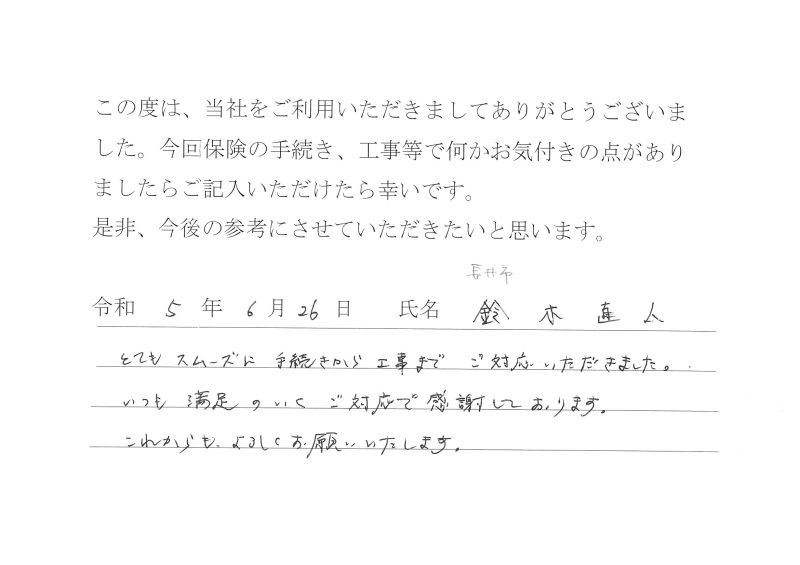 この度は、当社をご利用いただきましてありがとうございま
した。今回保険の手続き、工事等で何かお気付きの点があり
ましたらご記入いただけたら幸いです。
是非、今後の参考にさせていただきたいと思います。
長井市
令和 5 年 6 月 26 日 氏名 鈴木 直人
とてもスムーズに 手続きから 工事まで ご対応いただきました。
いつも 満足 のいく ご対応で 感謝しております。
これからも、よろしくお願いいたします。